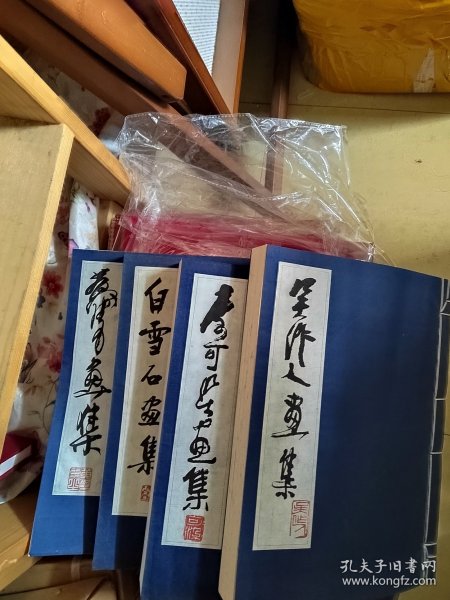 黄胄画集
白雪石画集
李可染画集
吴作人画集
孔夫子旧书网
www.kongfz.com